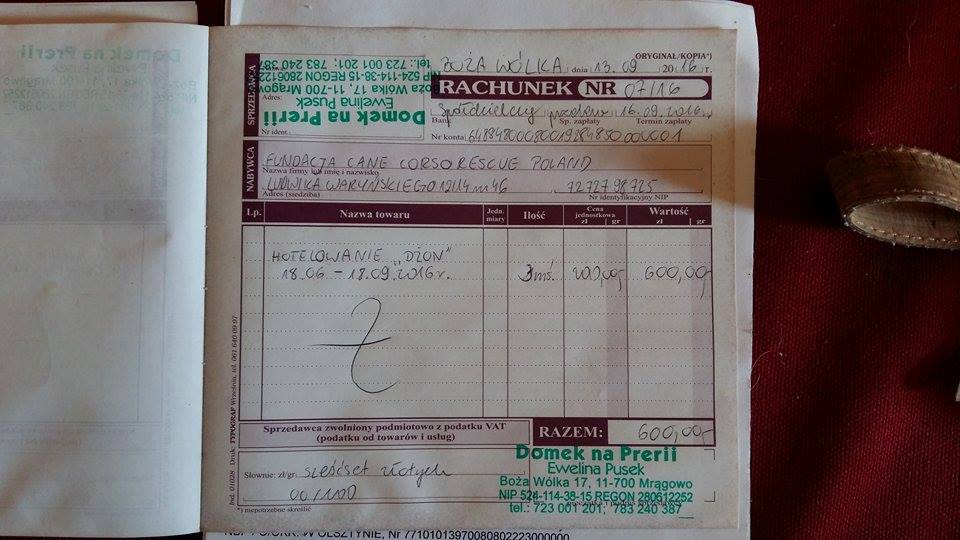 Domek na Prerii
ORYGINAŁ/KOPIA*)
BOŻA WÓLKA dnia 13.09 2016 r.
RACHUNEK NR 07/16
SPRZEDAWCA
Adres:
Nr ident.
Domek na Prerii
Ewelina Pusek
Boża Wólka 17, 11-700 Mrągowo
NIP 524-114-38-15 REGON 280612252
tel.: 723 001 201; 783 240 387
Spółdzielczy przelew 16.09.2016
Bank Sp. zapłaty Termin zapłaty
Nr konta
NABYWCA
FUNDACJA CANE CORSO RESCUE POLAND
Nazwa firmy lub imię i nazwisko
LUDWIKA WARYŃSKIEGO 12/14 m 46 7272798725
Adres (siedziba) Nr identyfikacyjny NIP
Lp. Nazwa towaru Jedn. miary Ilość Cena jednostkowa zł gr Wartość zł gr
HOTELOWANIE "DŻON"
18.06 - 18.09.2016 r. 3 mś. 200,00,- 600,00,-
Sprzedawca zwolniony podmiotowo z podatku VAT
(podatku od towarów i usług)
RAZEM: 600,00,-
Słownie: zł/gr. sześćset złotych
00/100
Domek na Prerii
Ewelina Pusek
Boża Wólka 17, 11-700 Mrągowo
NIP 524-114-38-15 REGON 280612252
tel.: 723 001 201; 783 240 387
*) niepotrzebne skreślić
Ind. 01028 Druk: TYPOGRAF Września, tel. 061 640 09 97
W OLSZTYNIE, Nr 77101013970080802223000000